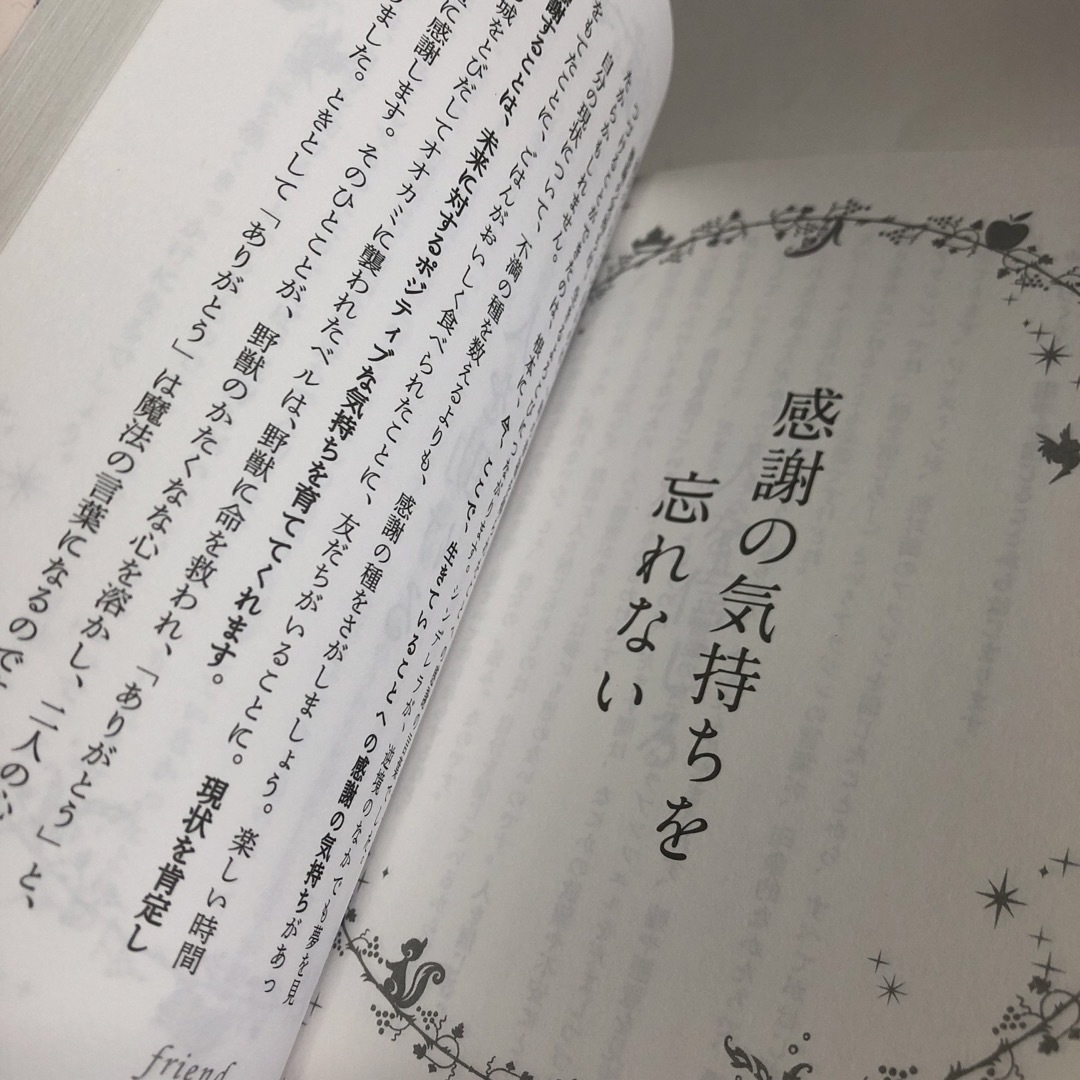 感謝の気持ちを
忘れない
シンデレラが、逆境のなかでも夢を見
つづけることができたのは、根本に、今、ここで、生きていることへの感謝の気持ちがあっ
たからかもしれません。
自分の現状について、不満の種を数えるよりも、感謝の種をさがしましょう。楽しい時間
をもてたことに、ごはんがおいしく食べられたことに、友だちがいることに。現状を肯定し
感謝することは、未来に対するポジティブな気持ちを育ててくれます。
城をとびだしてオオカミに襲われたベルは、野獣に命を救われ、「ありがとう」と、
に感謝します。そのひとことが、野獣のかたくなな心を溶かし、二人の心
りました。ときとして「ありがとう」は魔法の言葉になるので
friend